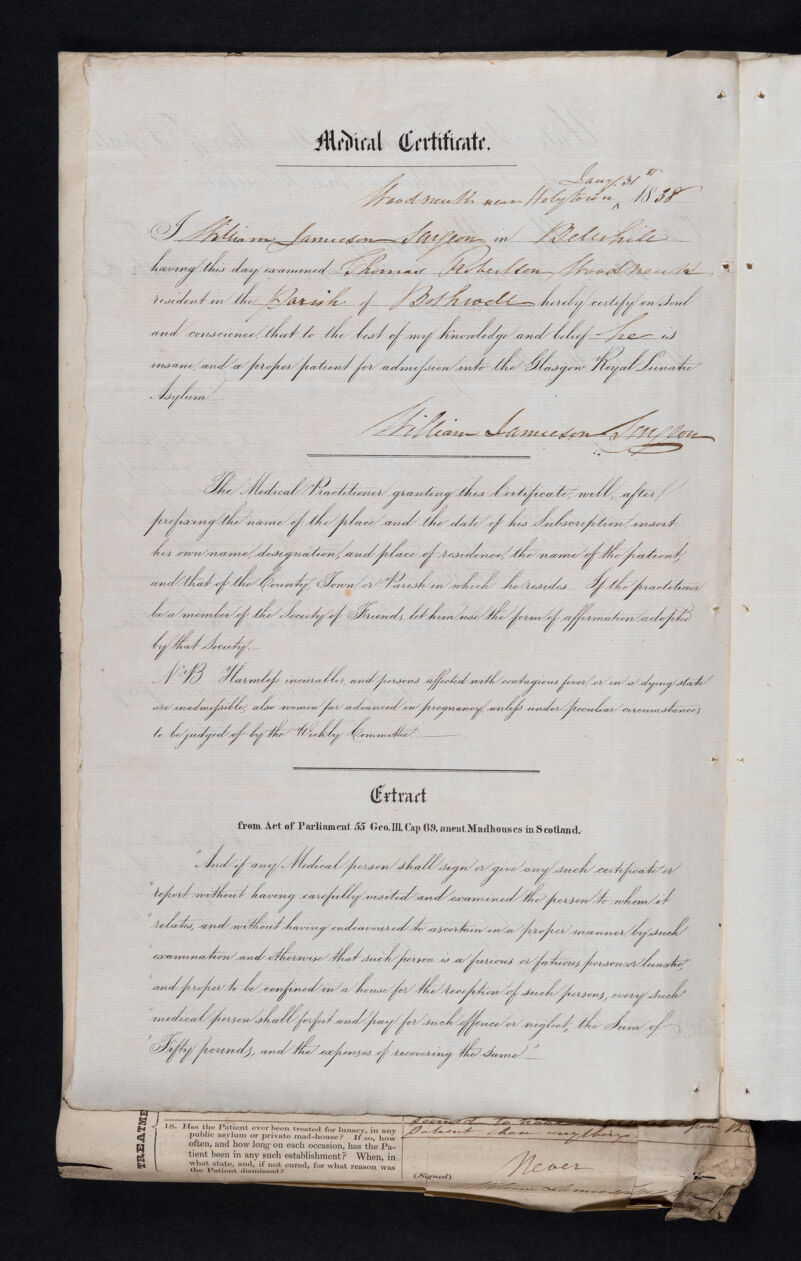 Medical Certificate.
Jany. 31st
Woodneuk near Holytown ^ 1838
I William Jamieson Surgeon in Belshill
having this day examined Thomas Robertson Woodneuk
resident in the Parish of Bothwell hereby certify on soul
and conscience, that to the best of my knowledge and belief he is
insane, and a proper patient for admission into the Glasgow Royal Lunatic
Asylum
William Jamieson Surgeon
The Medical Practitioner granting this Certificate, will, after
prefixing the name of the place and the date of his Subscription, insert
his own name, designation, and place of residence, the name of the patient,
and that of the County, Town or Parish in which he resides. If the practitioner
be a member of the Society of Friends, let him use the form of affirmation adopted
by that Society.
N.B. Harmless incurables, and persons affected with contagious fever, or in a dying state
are inadmissible, also women far advanced in pregnancy, unless under peculiar circumstances
to be judged of by the Weekly Committee.
Extract
from Act of Parliament 55 Geo. III. Cap 69, anent Madhouses in Scotland.
"And if any Medical person shall sign or give any such certificate or
"report without having carefully visited and examined the person to whom it
"relates, and without having endeavoured to ascertain in a proper manner by such
"examination and otherwise that such person is a furious or fatuous person or lunatic,
"and proper to be confined in a house for the reception of such persons, every such
"medical person shall forfeit and pay for such offence or neglect, the Sum of
"Fifty pounds, and the expenses of recovering the same"
TREATME
18. Has the Patient ever been treated for lunacy, in any
public asylum or private mad-house? If so, how
often, and how long on each occasion, has the Pa-
tient been in any such establishment? When, in
what state, and, if not cured, for what reason was
the Patient dismissed?
seemed to upon the
Patient than anything
Never
(Signed)
William Jamieson